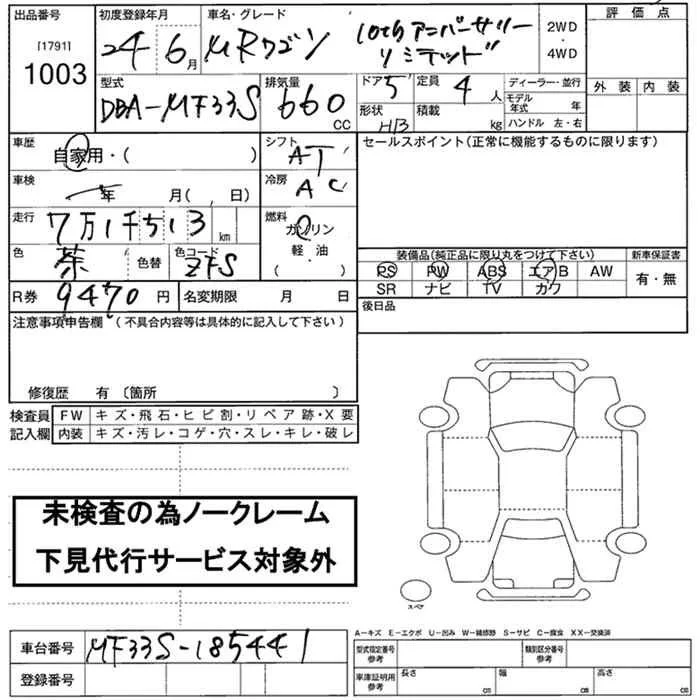 出品番号 初度登録年月 車名・グレード 評価点
[1791]
1003
24 6月 MRワゴン 10thアニバーサリー リミテッド 2WD・4WD
外装 内装
型式 排気量 ドア 定員 ディーラー・並行
DBA-MF33S 660CC 5 4人
モデル年式 年
形状 積載 ハンドル 左・右
H/B kg
車歴 自家用・( ) シフト AT セールスポイント(正常に機能するものに限ります)
車検 年 月( 、日) 冷房 AC
走行 7万1千513km 燃料 ガソリン
色 茶 色替 色コード ZTS 軽・油
( )
装備品(純正品に限り丸をつけて下さい) 新車保証書
PS PW ABS エアB AW 有・無
SR ナビ TV カワ
R券 9470円 名変期限 月 日 後日品
注意事項申告欄(不具合内容等は具体的に記入して下さい)
修復歴 有〔箇所 〕
検査員 FW キズ・飛石・ヒビ割・リペア跡・X要
記入欄 内装 キズ・汚レ・コゲ・穴・スレ・キレ・破レ
未検査の為ノークレーム
下見代行サービス対象外
スペア
A-キズ E-エクボ U-凹み W-補修跡 S-サビ C-腐食 XX-交換済
車台番号 MF33S-185441
型式指定番号 参考 類別区分番号 参考
登録番号
車庫証明用 参考 長さ cm 幅 cm 高さ cm